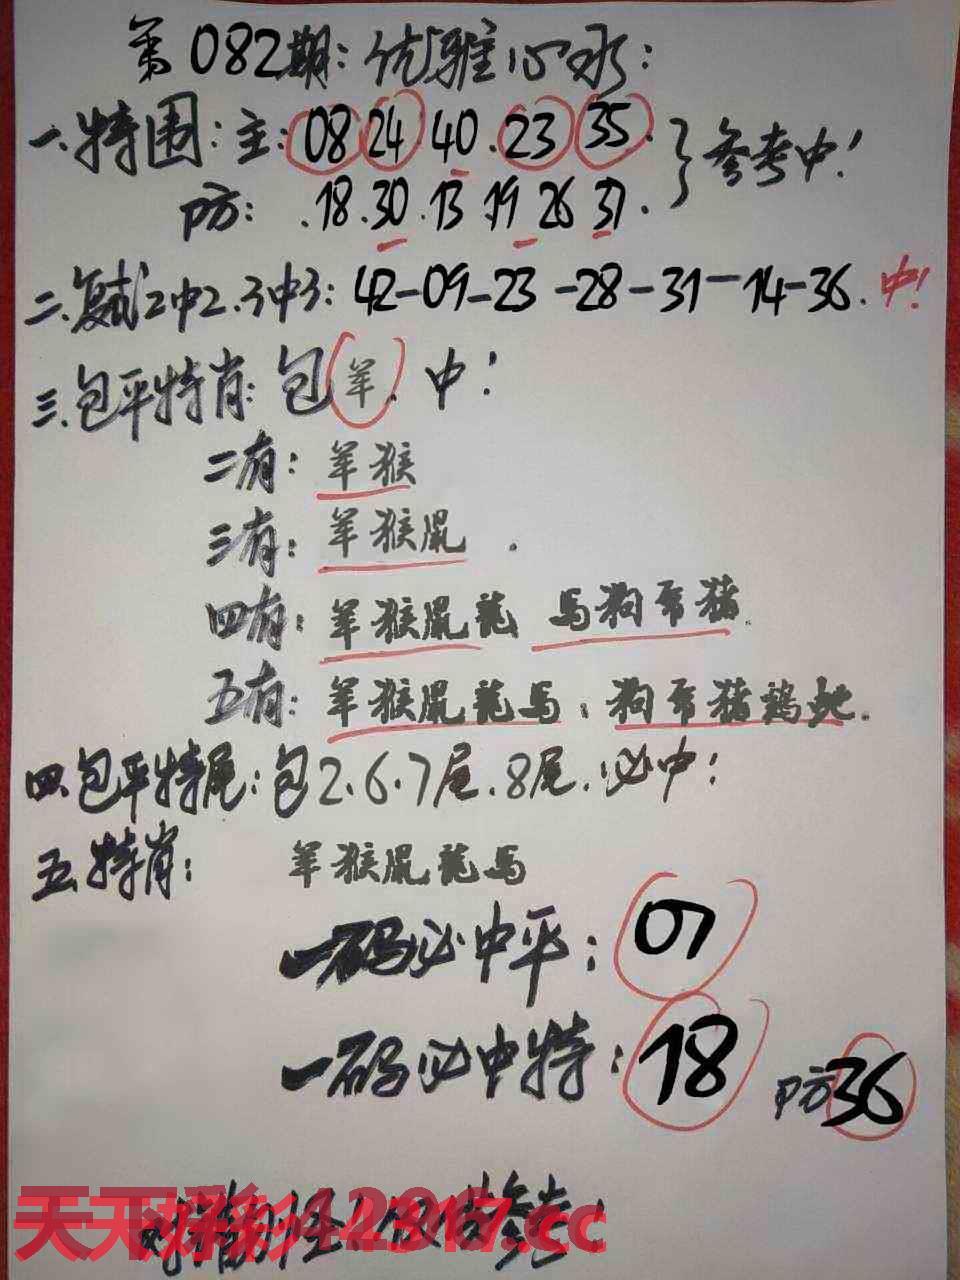 第082期:优雅心水:
一.特围:主:08 24.40.23 35.
防:.18.30.13.19 26 31.
参考中!
二.复试2中2.3中3:42-09-23-28-31-14-36.中!
三.包平特肖:包羊.中!
二有:羊猴
三有:羊猴鼠.
四有:羊猴鼠龙 马狗 猪.
五有:羊猴鼠龙马:狗 猪鸡蛇.
四.包平特尾:包2.6.7尾.8尾.必中!
五.特肖:羊猴鼠龙马
一码必中平:07
一码必中特:18 防36
天下彩 12317.cc
参考!